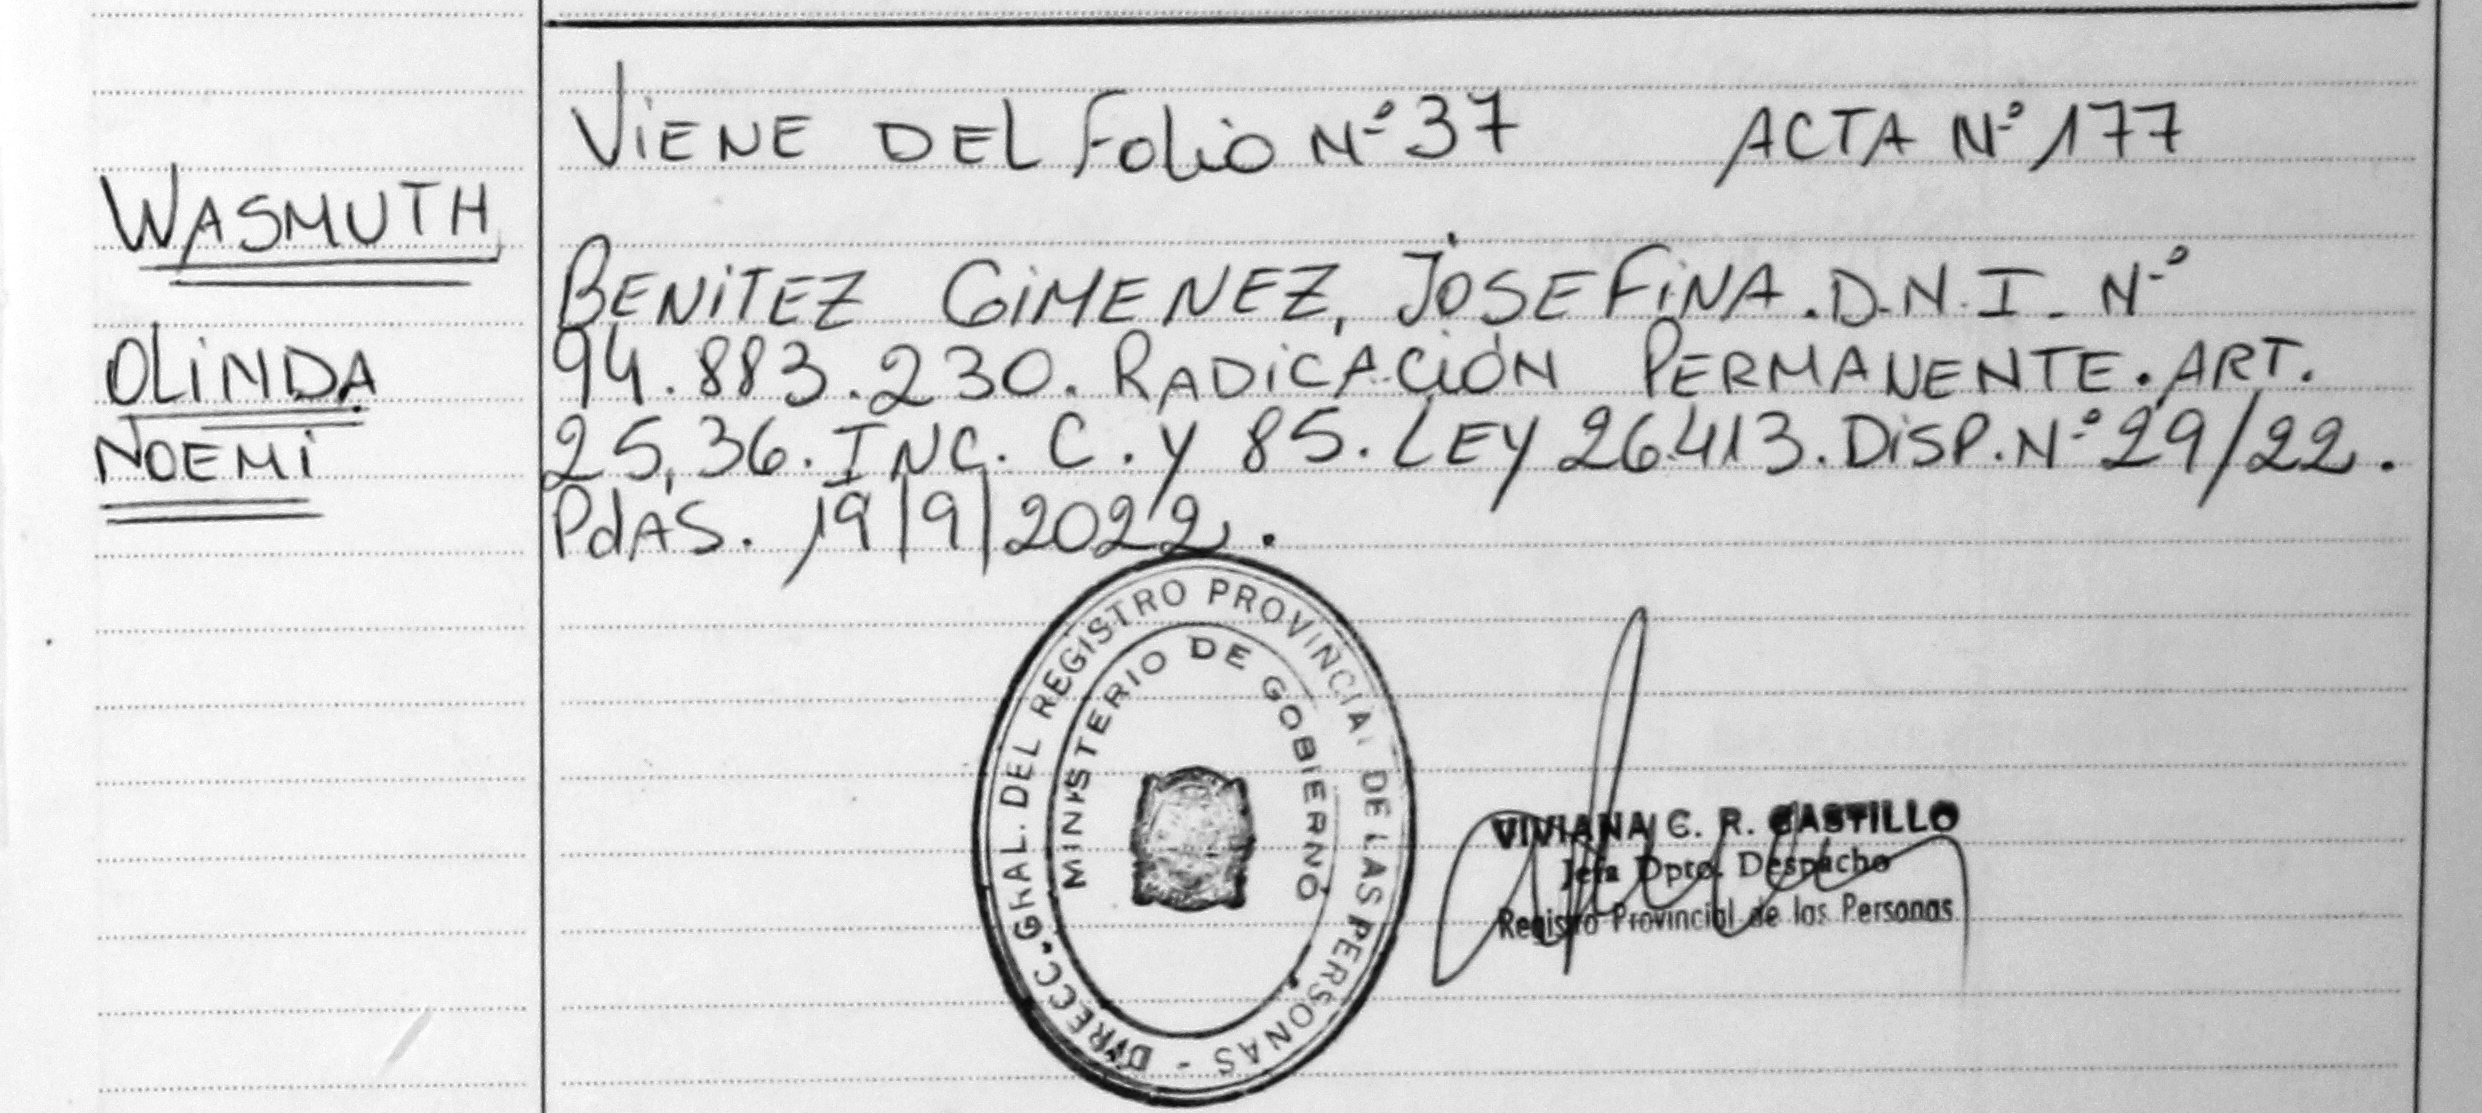 WASMUTH
OLINDA
NOEMI
VIENE DEL FOLIO Nº 37 ACTA Nº 177
BENITEZ GIMENEZ, JOSEFINA. D.N.I. Nº
94.883.230. RADICACIÓN PERMANENTE. ART.
25, 36. INC. C. Y 85. LEY 26413. DISP. Nº 29/22.
PdAS. 19/9/2022.
DIRECC. GRAL. DEL REGISTRO PROVINCIAL DE LAS PERSONAS -
MINISTERIO DE GOBIERNO
VIVIANA C. R. CASTILLO
Jefa Dpto. Despacho
Registro Provincial de las Personas